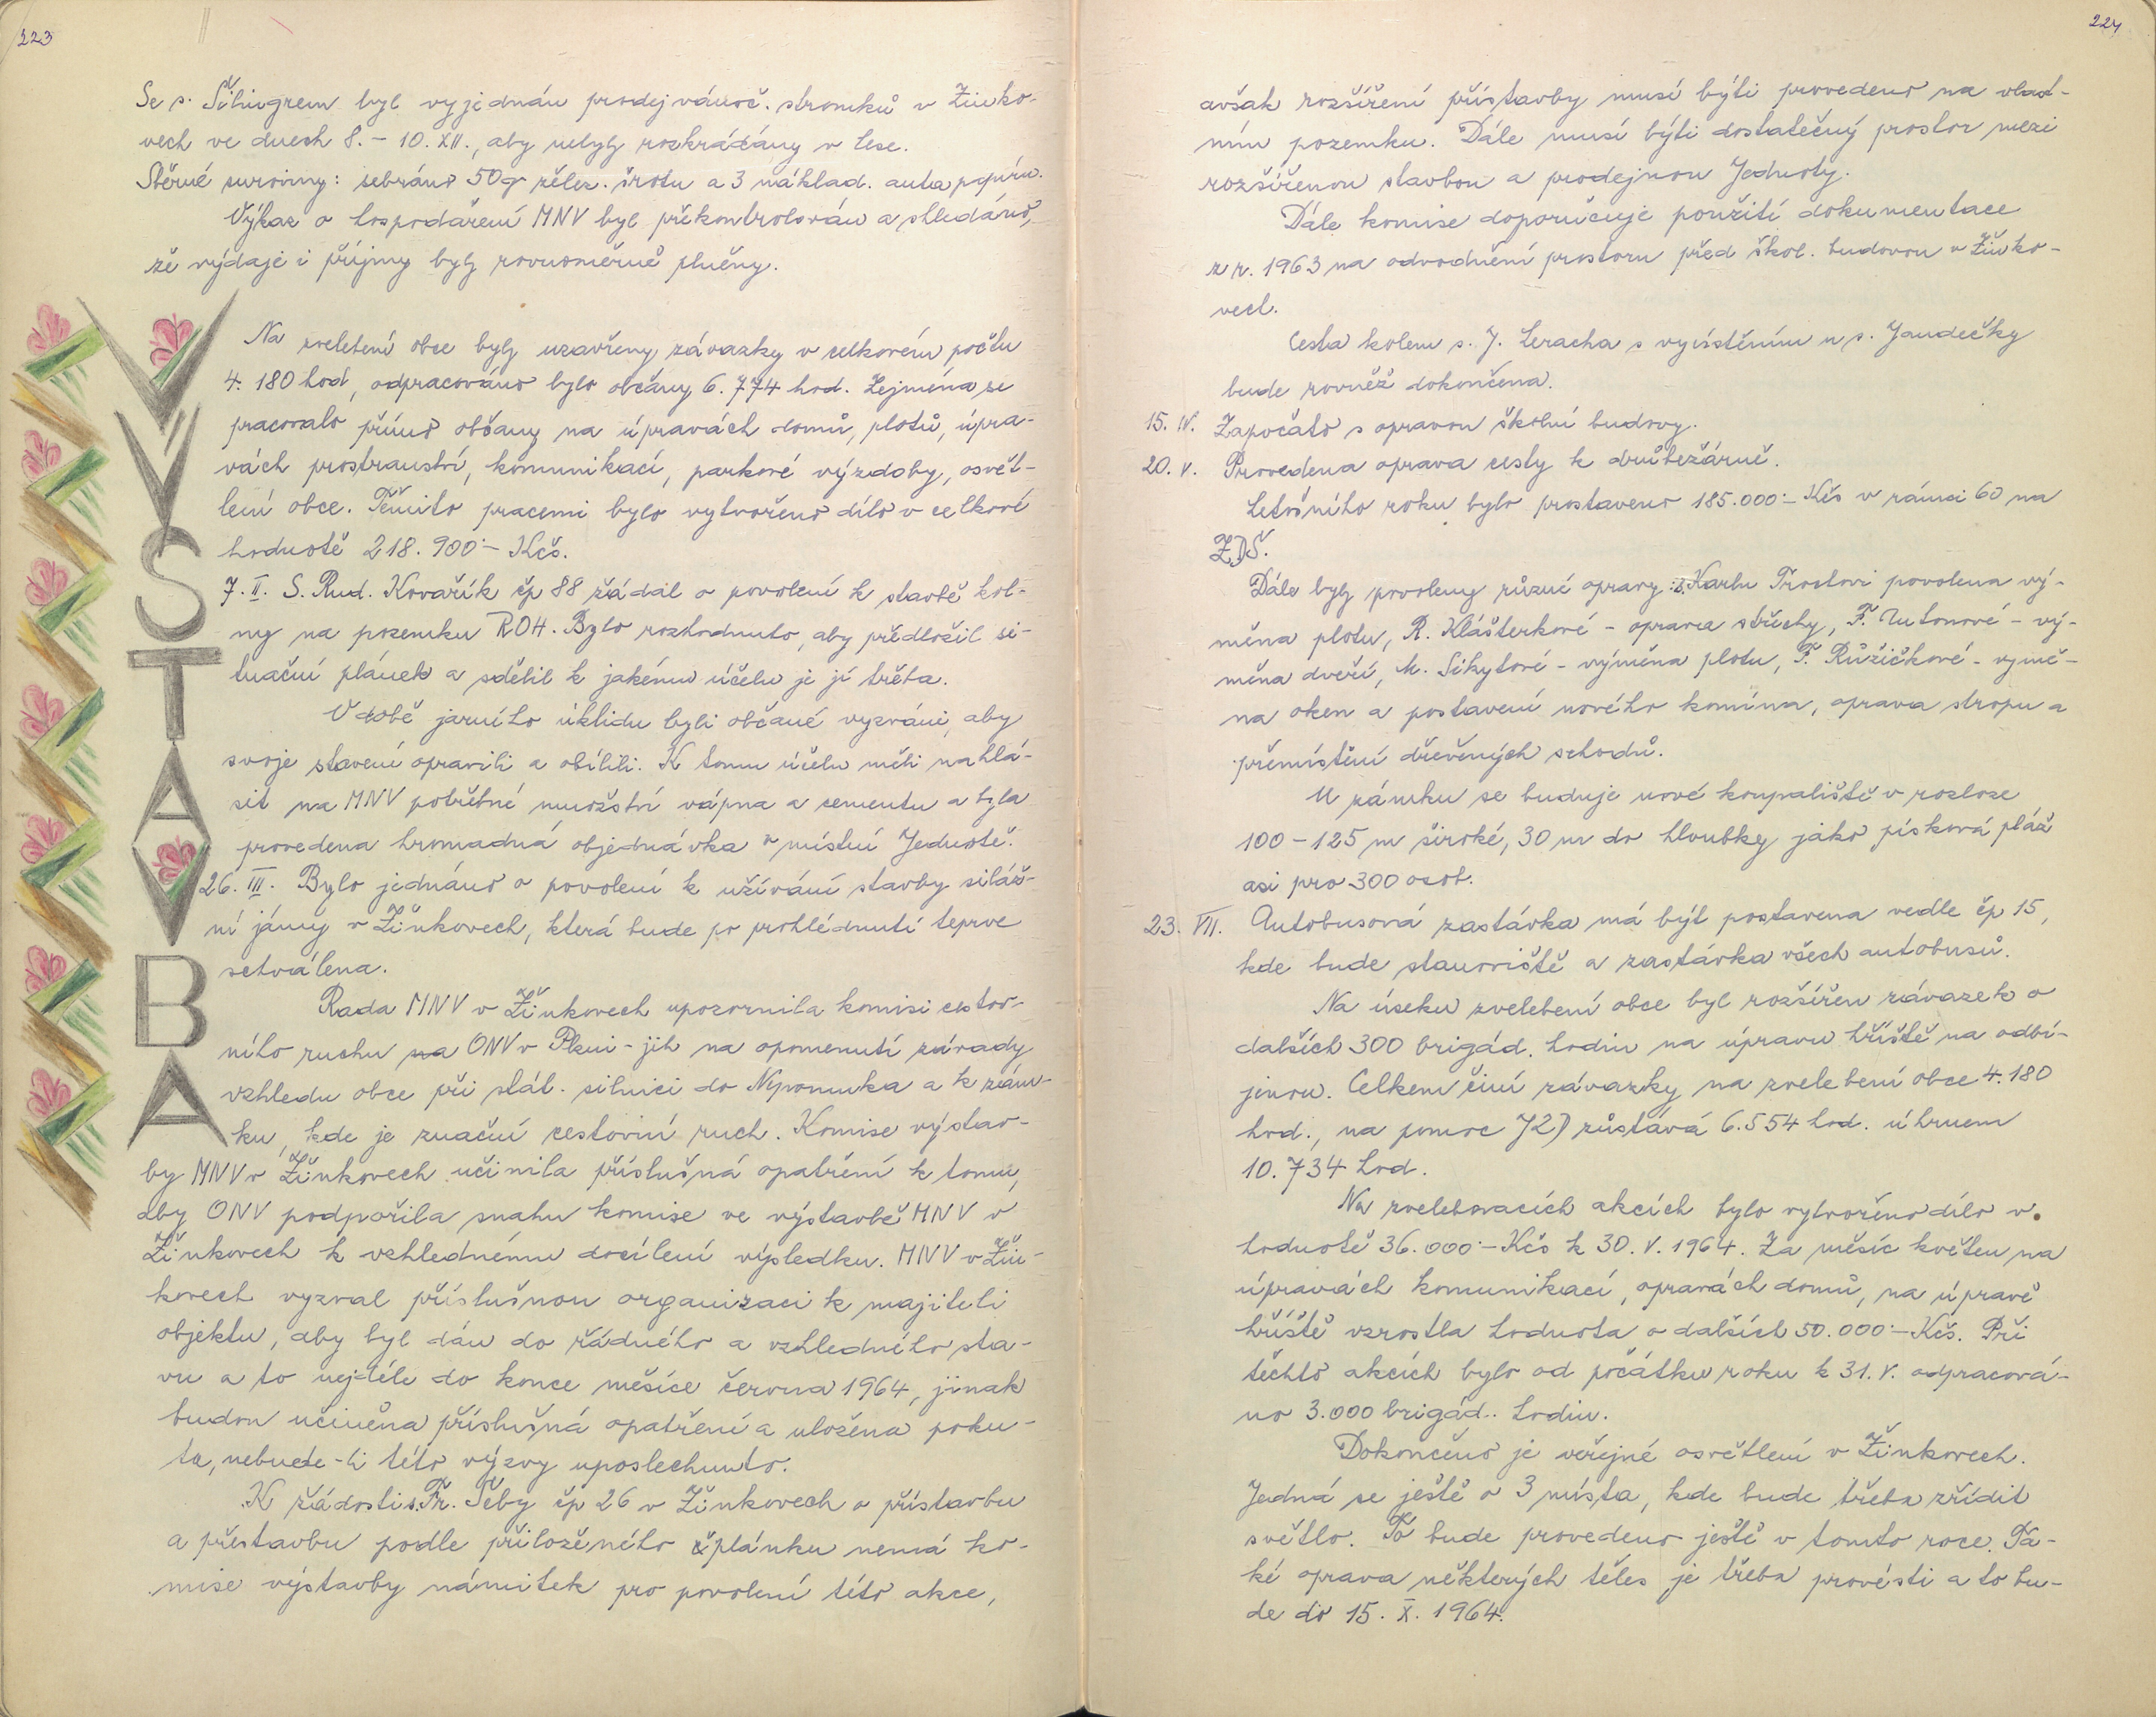 223
Se s. Šihingrem byl vyjednán prodej vánoč. stromků v Žinko-
vech ve dnech 8. - 10. XII., aby nebyly rozkrádány v lese.
Sběrné suroviny: sebráno 50q želez. šrotu a 3 náklad. auta papíru.
Výkaz o hospodaření MNV byl překontrolován a shledáno,
že výdaje i příjmy byly rovnoměrně plněny.
VÝSTAVBA
Na zvelebení obce byly uzavřeny závazky v celkovém počtu
4.180 hod, odpracováno bylo občany 6.774 hod. Zejména se
pracovalo přímo občany na úpravách domů, plotů, úpra-
vách prostranství, komunikací, parkové výzdoby, osvět-
lení obce. Těmito pracemi bylo vytvořeno dílo v celkové
hodnotě 218.900·- Kčs.
7. II. S. Rud. Kovařík čp 88 žádal o povolení k stavbě kol-
ny na pozemku ROH. Bylo rozhodnuto, aby předložil si-
tuační plánek a sdělil k jakému účelu je jí třeba.
V době jarního úklidu byli občané vyzváni, aby
svoje stavení opravili a obílili. K tomu účelu měli nahlá-
sit na MNV potřebné množství vápna a cementu a byla
provedena hromadná objednávka v místní Jednotě.
26. III. Bylo jednáno o povolení k užívání stavby siláž-
ní jámy v Žinkovech, která bude po prohlédnutí teprve
schválena.
Rada MNV v Žinkovech upozornila komisi cestov-
ního ruchu na ONV v Plzni - jih na opomenutí závady
vzhledu obce při stát. silnici do Nepomuka a k zám-
ku, kde je značný cestovní ruch. Komise výstav-
by MNV v Žinkovech učinila příslušná opatření k tomu,
aby ONV podpořila snahu komise ve výstavbě MNV v
Žinkovech k vzhlednému docílení výsledku. MNV v Žin-
kovech vyzval příslušnou organizaci k majiteli
objektu, aby byl dán do řádného a vzhledného sta-
vu a to nejdéle do konce měsíce června 1964, jinak
budou učiněna příslušná opatření a uložena poku-
ta, nebude-li této výzvy uposlechnuto.
K žádosti s. Fr. Šeby čp 26 v Žinkovech o přístavbu
a přestavbu podle přiloženého plánku nemá ko-
mise výstavby námitek pro povolení této akce,
224
avšak rozšíření přístavby musí býti provedeno na vlast-
ním pozemku. Dále musí býti dostatečný prostor mezi
rozšířenou stavbou a prodejnou Jednoty.
Dále komise doporučuje použití dokumentace
z r. 1963 na odvodnění prostoru před škol. budovou v Žinko-
vech.
Cesta kolem s. J. Leracha s vyústěním u s. Jandečky
bude rovněž dokončena.
15. IV. Započato s opravou školní budovy.
20. V. Provedena oprava cesty k drůbežárně.
Letošního roku bylo prostaveno 185.000·- Kčs v rámci 60 na
ZDŠ.
Dále byly povoleny různé opravy: s. Karlu Trostovi povolena vý-
měna plotu, R. Klášterkové - oprava střechy, F. Untonové - vý-
měna dveří, M. Sikytové - výměna plotu, F. Růžičkové - výmě-
na oken a postavení nového komína, oprava stropu a
přemístění dřevěných schodů.
U zámku se buduje nové koupaliště v rozloze
100 - 125 m široké, 30 m do hloubky jako písková pláž
asi pro 300 osob.
23. VII. Autobusová zastávka má být postavena vedle čp 15,
kde bude stanoviště a zastávka všech autobusů.
Na úseku zvelebení obce byl rozšířen závazek o
dalších 300 brigád. hodin na úpravu hřiště na odbí-
jenou. Celkem činí závazky na zvelebení obce 4.180
hod., na pomoc JZD zůstává 6.554 hod. úhrnem
10.734 hod.
Na zvelebovacích akcích bylo vytvořeno dílo v
hodnotě 36.000·- Kčs k 30. V. 1964. Za měsíc květen na
úpravách komunikací, opravách domů, na úpravě
hřiště vzrostla hodnota o dalších 50.000·- Kčs. Při
těchto akcích bylo od počátku roku k 31. V. odpracová-
no 3.000 brigád. hodin.
Dokončeno je veřejné osvětlení v Žinkovech.
Jedná se ještě o 3 místa, kde bude třeba zřídit
světlo. To bude provedeno ještě v tomto roce. Ta-
ké oprava některých těles je třeba provésti a to bu-
de do 15. X. 1964.